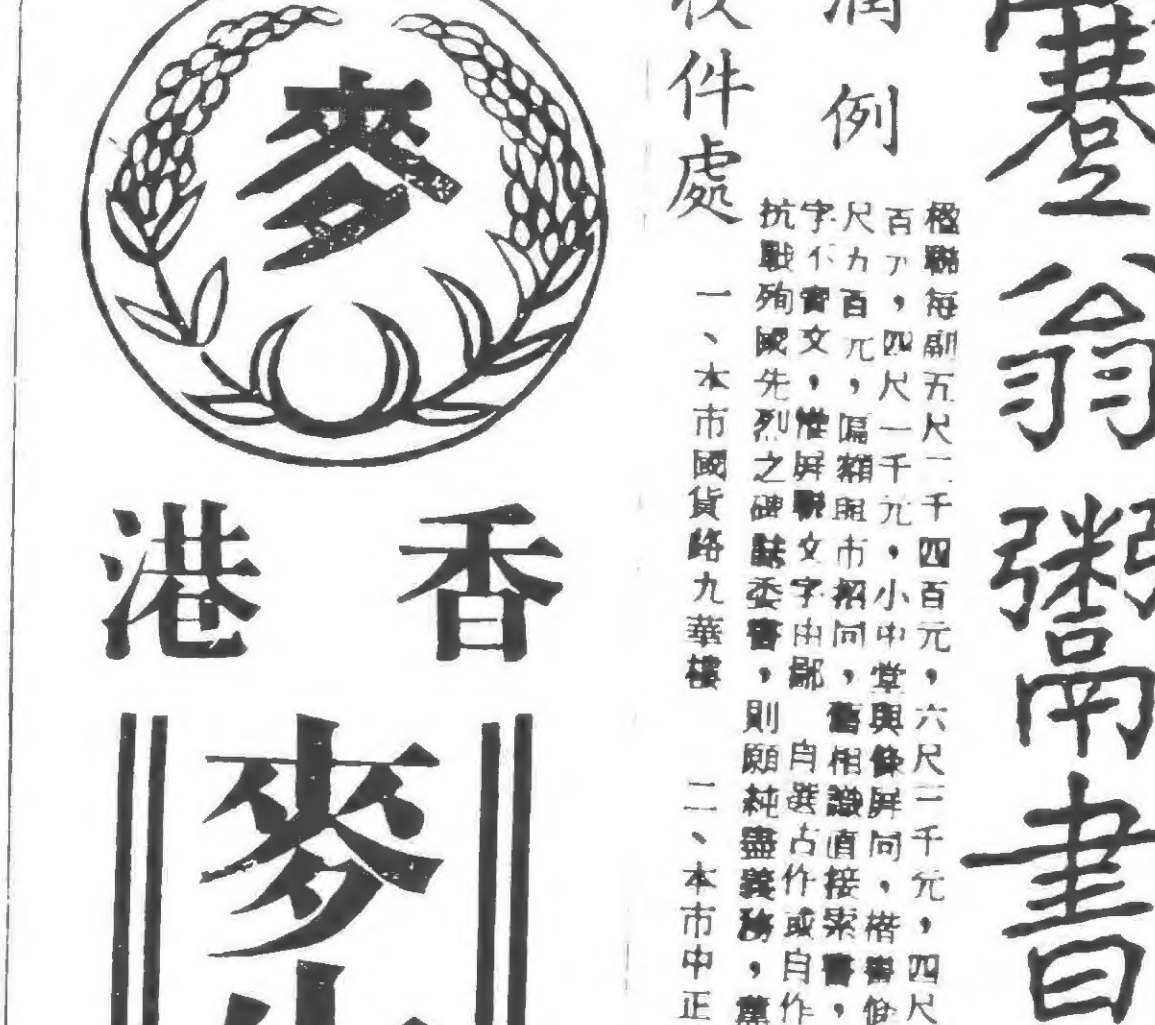 翁鬻書
潤例
楹聯每副五尺二千四百元,六尺二千元,四尺
百,四尺一千元,小中堂與條屏同,楷書條
尺力百元,匾額與市招同,舊相識直接索書,
字不賣文,惟屏聯文字由鄙 自選古作或自作
抗戰殉國先烈之碑誌委書,則願純盡義務,
收件處
一、本市國貨路九華樓 二、本市中正
麥
香港
麥